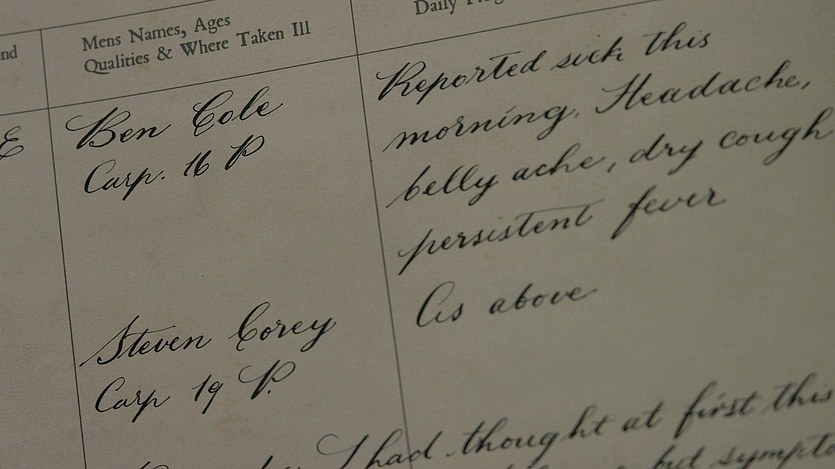 nd
Mens Names, Ages
Qualities & Where Taken Ill
Daily
E
Ben Cole
Carp. 16 P
Reported sick this
morning. Headache,
belly ache, dry cough
persistent fever
Steven Corey
Carp 19 P.
As above
I had thought at first this
but